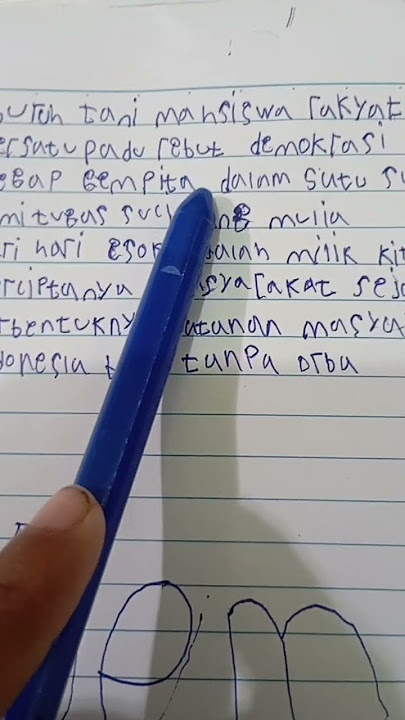 uruh tani mahsiswa rakyat
ersatu padu rebut demokrasi
egap gempita dalam sutu su
mi tugas suci mulia
ri hari esok adalah milik kit
rciptanya syarakat sej
rbentukny atanan masya
onesia tanpa orba
em